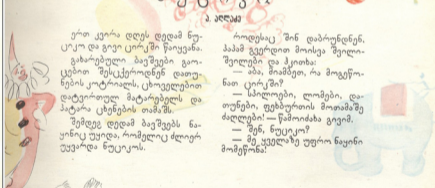 ა. ალღაძე
ერთ კვირა დღეს დედამ ნუ-
ციკო და გივი ცირკში წაიყვანა.
გახარებული ბავშვები გაო-
ცებით შესცქეროდნენ დათუ-
ნების კოტრიალს, ცხოველებით
დატვირთულ მატარებელს და
პატარა ცხენების თამაშს.
შემდეგ დედამ ბავშვებს ნა-
ყინიც უყიდა, რომელიც ძლიერ
უყვარდა ნუციკოს.
როდესაც შინ დაბრუნდნენ,
პაპამ გვერდით მოისვა შვილი-
შვილები და ჰკითხა:
— აბა, მიამბეთ, რა მოგეწო-
ნათ ცირკში?
— სპილოები, ლომები, და-
თუნები, ფეხბურთის მოთამაშე
ძაღლები! — წამოიძახა გივიმ.
— შენ, ნუციკო?
— მე ყველაზე უფრო ნაყინი
მომეწონა!